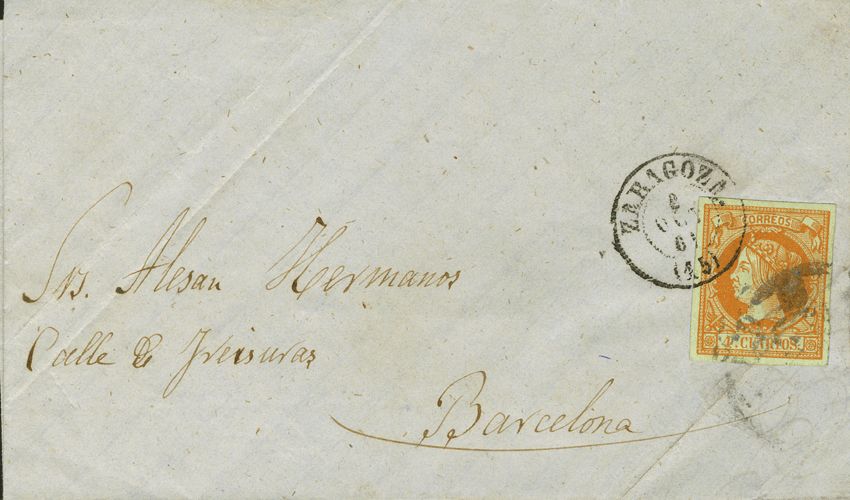 ZARAGOZA
6
OCT
61
(45)
CORREOS
4 CUARTOS
Srs. Alesan Hermanos
Calle de Freisuras
Barcelona